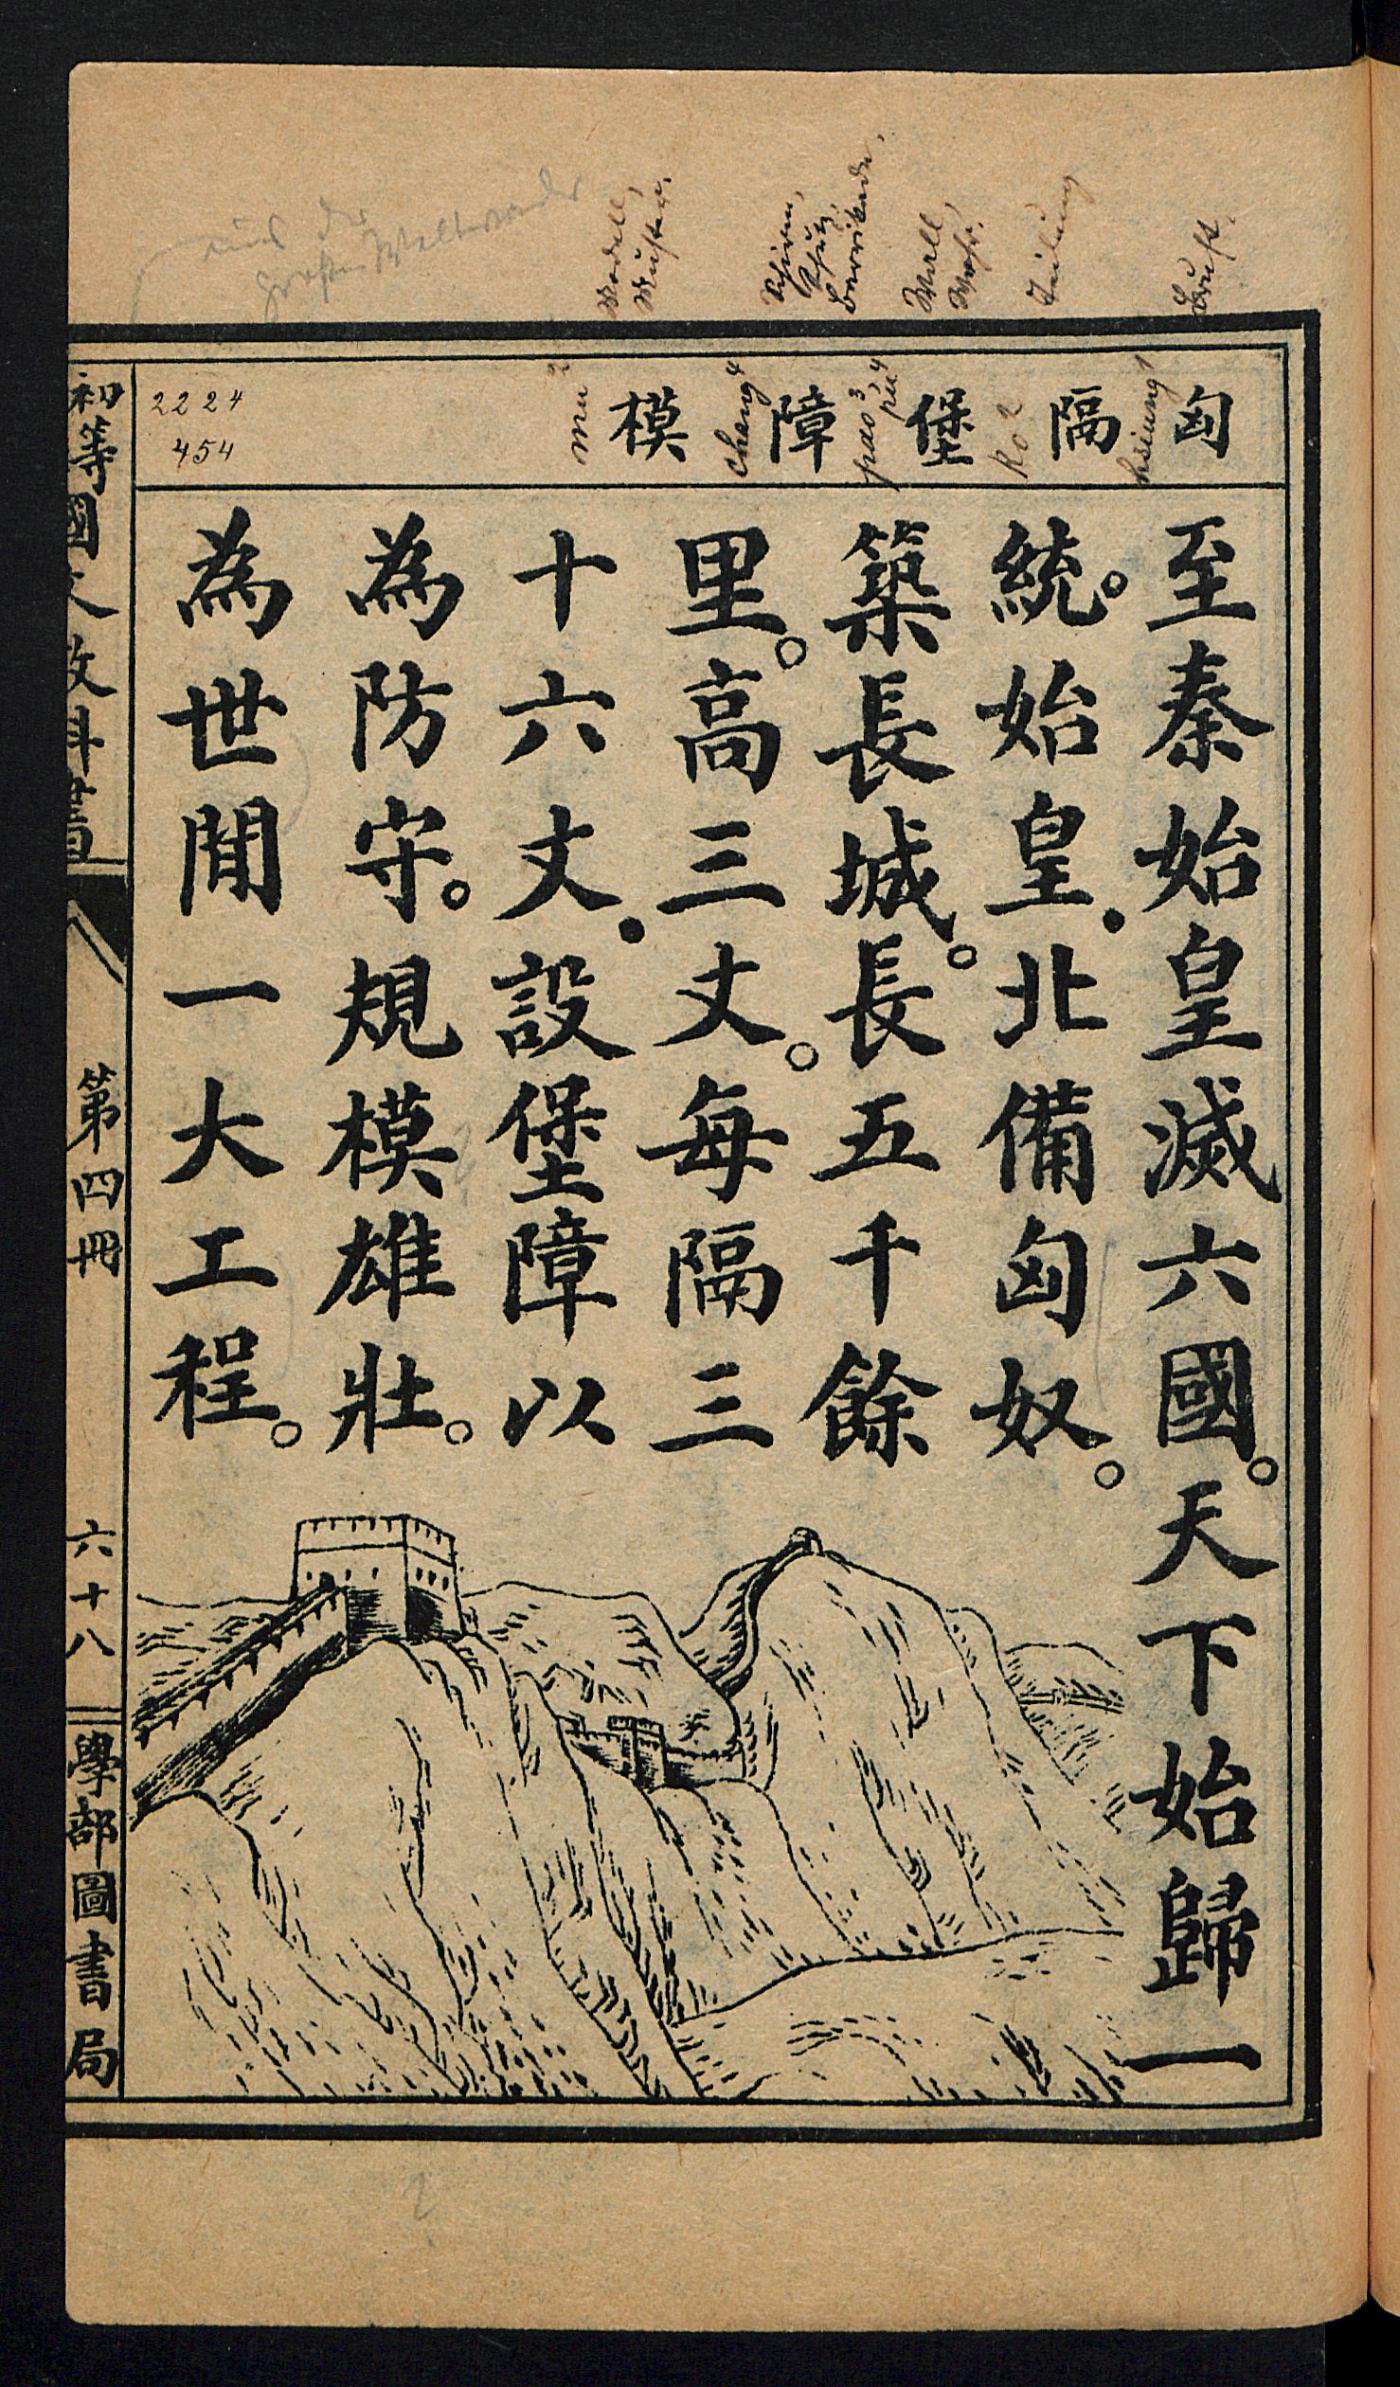 匈隔堡障模
hsiung¹
ko²
pao³
pu⁴
chang⁴
mu²
2224
454
至秦始皇滅六國。天下始歸一
統。始皇.北備匈奴。
築長城。長五千餘
里。高三丈。每隔三
十六丈.設堡障以
為防守。規模雄壯。
為世間一大工程。
初等國文教科書
第四冊
六十八
學部圖書局
Brust.
Teilung
Wall,
Wehr.
Schirm,
Schutz,
Barrikade,
Modell,
Muster.
aus der
großen Weltwunder
2